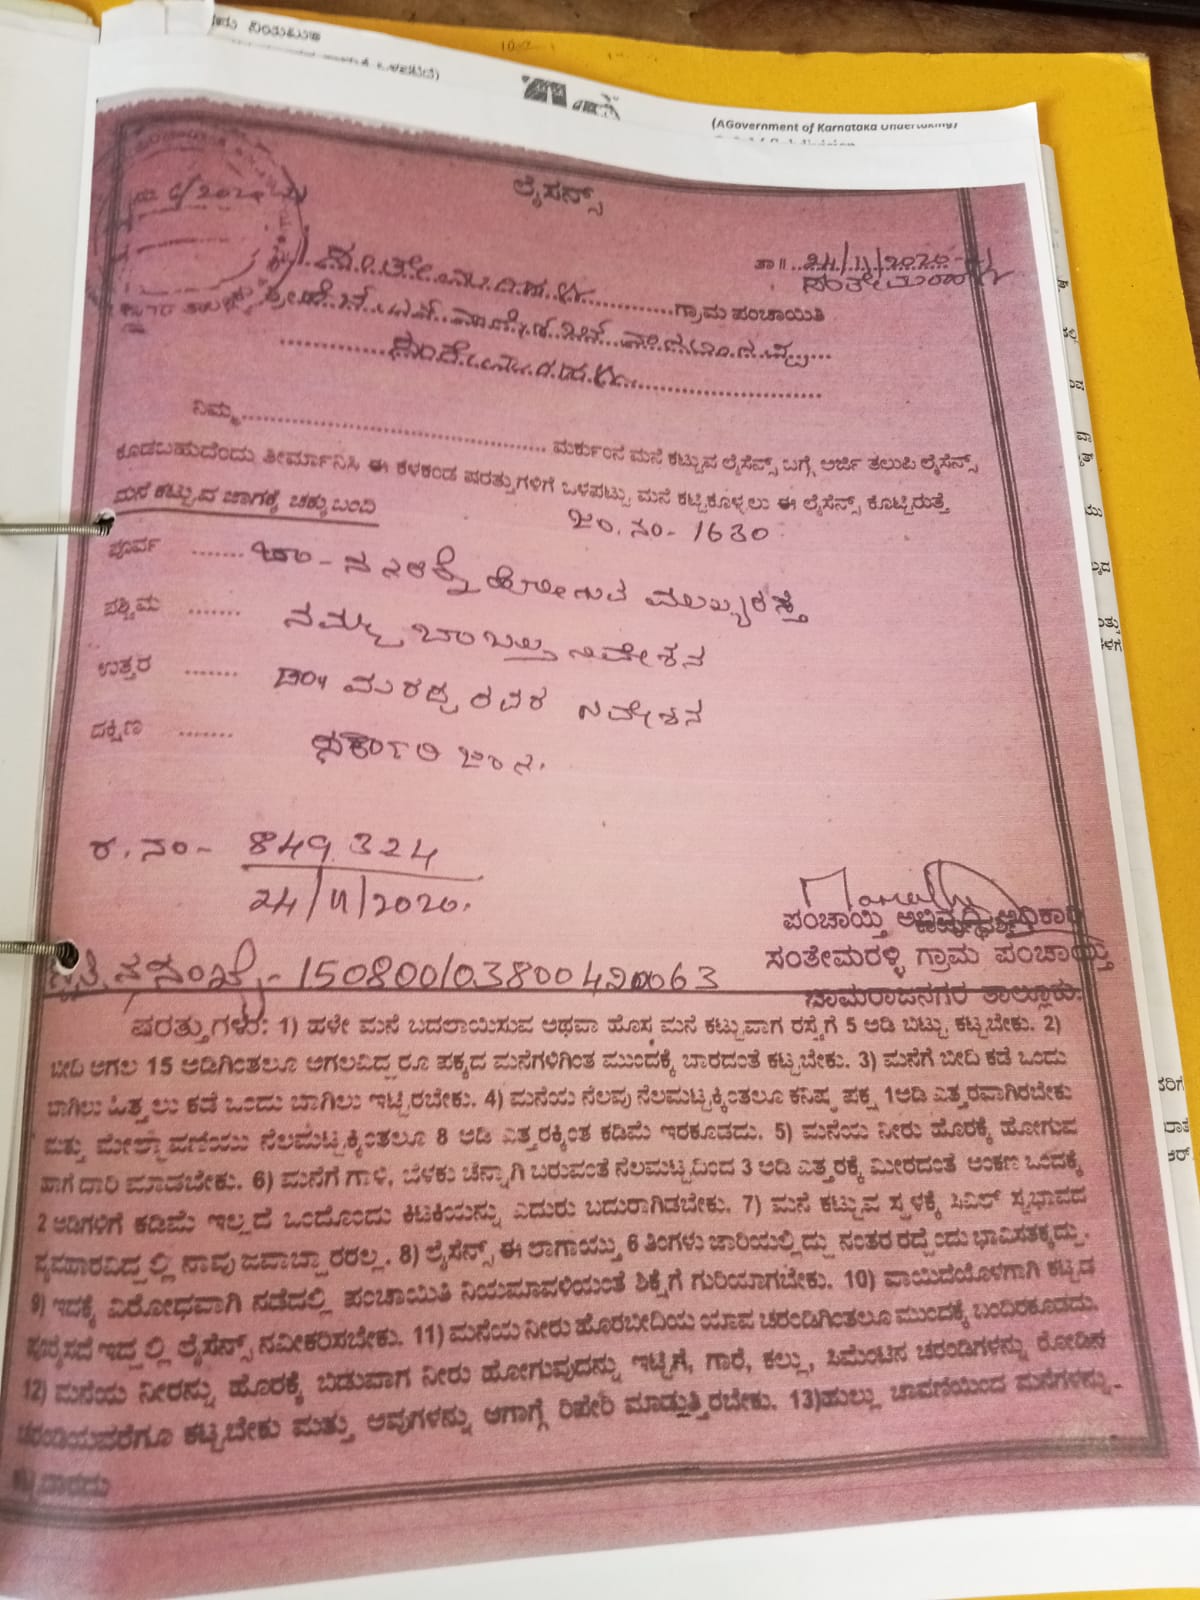 ನಿಯಮಿತ
ಒಳಪಟ್ಟಿದೆ)
(AGovernment of Karnataka Undertaking)
ಲೈಸೆನ್ಸ್
6/2020
ತಾ॥ 24/11/2020
ಸಂತೇಮರಹಳ್ಳಿ
ಸಂತೇಮರಹಳ್ಳಿ ಗ್ರಾಮ ಪಂಚಾಯಿತಿ
ಸಂತೇಮರಹಳ್ಳಿ
ನಿಮ್ಮ ಮರ್ಕುಂನ ಮನೆ ಕಟ್ಟುವ ಲೈಸೆನ್ಸ್ ಬಗ್ಗೆ ಅರ್ಜಿ ತಲುಪಿ ಲೈಸೆನ್ಸ್
ಕೂಡಬಹುದೆಂದು ತೀರ್ಮಾನಿಸಿ ಈ ಕೆಳಕಂಡ ಷರತ್ತುಗಳಿಗೆ ಒಳಪಟ್ಟು ಮನೆ ಕಟ್ಟಿಕೊಳ್ಳಲು ಈ ಲೈಸೆನ್ಸ್ ಕೊಟ್ಟಿರುತ್ತೆ
ಮನೆ ಕಟ್ಟುವ ಜಾಗಕ್ಕೆ ಚಕ್ಕುಬಂದಿ
ಜಂ. ನಂ- 1630
ಪೂರ್ವ ....... ಹೋಗುವ ಮುಖ್ಯರಸ್ತೆ
ಪಶ್ಚಿಮ ....... ನಮ್ಮ ಬಾಬತ್ತು ನಿವೇಶನ
ಉತ್ತರ ....... ರವರ ನಿವೇಶನ
ದಕ್ಷಿಣ ....... ಸರ್ಕಾರಿ ಜಾಗ.
ರ. ನಂ- 849324
24/11/2020.
ಪಂಚಾಯ್ತಿ ಅಭಿವೃದ್ಧಿ ಅಧಿಕಾರಿ
ಸಂತೇಮರಳ್ಳಿ ಗ್ರಾಮ ಪಂಚಾಯ್ತಿ
ಚಾಮರಾಜನಗರ ತಾಲ್ಲೂಕು.
ಸ್ವತ್ತಿನ ಸಂಖ್ಯೆ - 150800103800420063
ಷರತ್ತುಗಳು: 1) ಹಳೇ ಮನೆ ಬದಲಾಯಿಸುವ ಅಥವಾ ಹೊಸ ಮನೆ ಕಟ್ಟುವಾಗ ರಸ್ತೆಗೆ 5 ಅಡಿ ಬಿಟ್ಟು ಕಟ್ಟಬೇಕು. 2)
ಬೀದಿ ಅಗಲ 15 ಅಡಿಗಿಂತಲೂ ಅಗಲವಿದ್ದರೂ ಪಕ್ಕದ ಮನೆಗಳಿಗಿಂತ ಮುಂದಕ್ಕೆ ಬಾರದಂತೆ ಕಟ್ಟಬೇಕು. 3) ಮನೆಗೆ ಬೀದಿ ಕಡೆ ಒಂದು
ಬಾಗಿಲು ಹಿತ್ತಲು ಕಡೆ ಒಂದು ಬಾಗಿಲು ಇಟ್ಟಿರಬೇಕು. 4) ಮನೆಯ ನೆಲವು ನೆಲಮಟ್ಟಕ್ಕಿಂತಲೂ ಕನಿಷ್ಠ ಪಕ್ಷ 1ಅಡಿ ಎತ್ತರವಾಗಿರಬೇಕು
ಮತ್ತು ಮೇಲ್ಚಾವಣಿಯು ನೆಲಮಟ್ಟಕ್ಕಿಂತಲೂ 8 ಅಡಿ ಎತ್ತರಕ್ಕಿಂತ ಕಡಿಮೆ ಇರಕೂಡದು. 5) ಮನೆಯ ನೀರು ಹೊರಕ್ಕೆ ಹೋಗುವ
ಹಾಗೆ ದಾರಿ ಮಾಡಬೇಕು. 6) ಮನೆಗೆ ಗಾಳಿ, ಬೆಳಕು ಚೆನ್ನಾಗಿ ಬರುವಂತೆ ನೆಲಮಟ್ಟದಿಂದ 3 ಅಡಿ ಎತ್ತರಕ್ಕೆ ಮೀರದಂತೆ ಅಂಕಣ ಒಂದಕ್ಕೆ
2 ಅಡಿಗಳಿಗೆ ಕಡಿಮೆ ಇಲ್ಲದೆ ಒಂದೊಂದು ಕಿಟಕಿಯನ್ನು ಎದುರು ಬದುರಾಗಿಡಬೇಕು. 7) ಮನೆ ಕಟ್ಟುವ ಸ್ಥಳಕ್ಕೆ ಸಿವಿಲ್ ಸ್ವಭಾವದ
ವ್ಯವಹಾರವಿದ್ದಲ್ಲಿ ನಾವು ಜವಾಬ್ದಾರರಲ್ಲ. 8) ಲೈಸೆನ್ಸ್ ಈ ಲಾಗಾಯ್ತು 6 ತಿಂಗಳು ಜಾರಿಯಲ್ಲಿದ್ದು ನಂತರ ರದ್ದೆಂದು ಭಾವಿಸತಕ್ಕದ್ದು.
9) ಇದಕ್ಕೆ ವಿರೋಧವಾಗಿ ನಡೆದಲ್ಲಿ ಪಂಚಾಯಿತಿ ನಿಯಮಾವಳಿಯಂತೆ ಶಿಕ್ಷೆಗೆ ಗುರಿಯಾಗಬೇಕು. 10) ವಾಯಿದೆಯೊಳಗಾಗಿ ಕಟ್ಟಡ
ಪೂರೈಸದೆ ಇದ್ದಲ್ಲಿ ಲೈಸೆನ್ಸ್ ನವೀಕರಿಸಬೇಕು. 11) ಮನೆಯ ನೀರು ಹೊರಬೀದಿಯ ಯಾವ ಚರಂಡಿಗಿಂತಲೂ ಮುಂದಕ್ಕೆ ಬಂದಿರಕೂಡದು.
12) ಮನೆಯ ನೀರನ್ನು ಹೊರಕ್ಕೆ ಬಿಡುವಾಗ ನೀರು ಹೋಗುವುದನ್ನು ಇಟ್ಟಿಗೆ, ಗಾರೆ, ಕಲ್ಲು, ಸಿಮೆಂಟಿನ ಚರಂಡಿಗಳನ್ನು ರೋಡಿನ
ಚರಂಡಿಯವರೆಗೂ ಕಟ್ಟಬೇಕು ಮತ್ತು ಅವುಗಳನ್ನು ಆಗಾಗ್ಗೆ ರಿಪೇರಿ ಮಾಡುತ್ತಿರಬೇಕು. 13)ಹುಲ್ಲು ಚಾವಣಿಯಿಂದ ಮನೆಗಳನ್ನು
ಬಾರದು